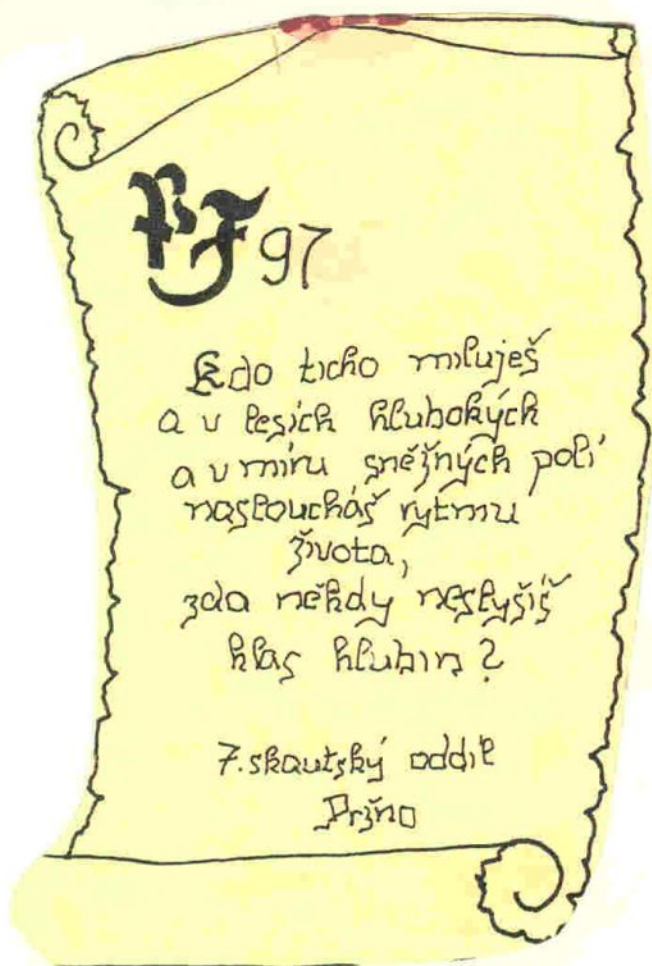 PF 97
Kdo ticho miluješ
a v lesích hlubokých
a v míru sněžných polí
nasloucháš rytmu
života,
zda někdy neslyšíš
hlas hlubin?
7. skautský oddíl
Pržno